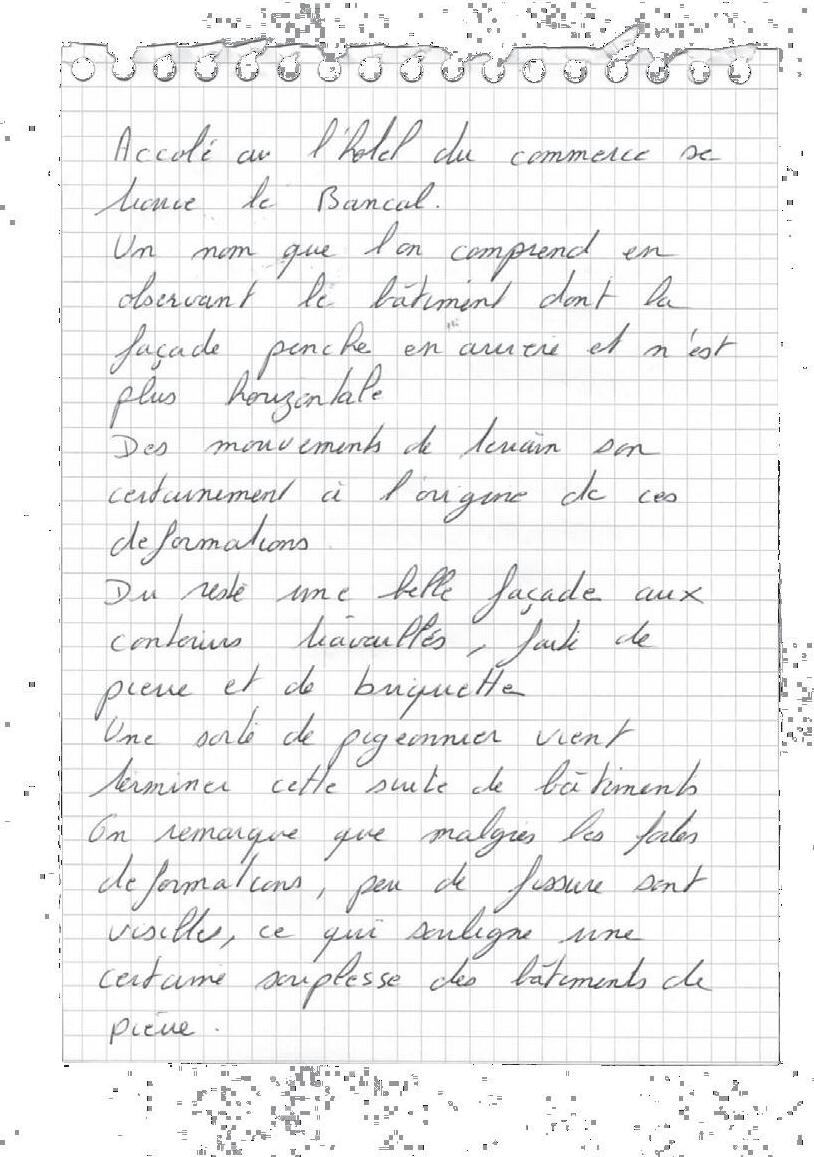 Accolé au l'hotel du commerce se
trouve le Bancal.
Un nom que l'on comprend en
observant le bâtiment dont la
façade penche en arriere et n'est
plus horizontale
Des mouvements de terrain son
certainement à l'origine de ces
deformations.
Du reste une belle façade aux
contours travaillés, faite de
pierre et de briquette
Une sorte de pigeonnier vient
terminer cette suite de bâtiments
On remarque que malgres les fortes
deformations, peu de fissure sont
visibles, ce qui souligne une
certaine souplesse des bâtiments de
pierre.